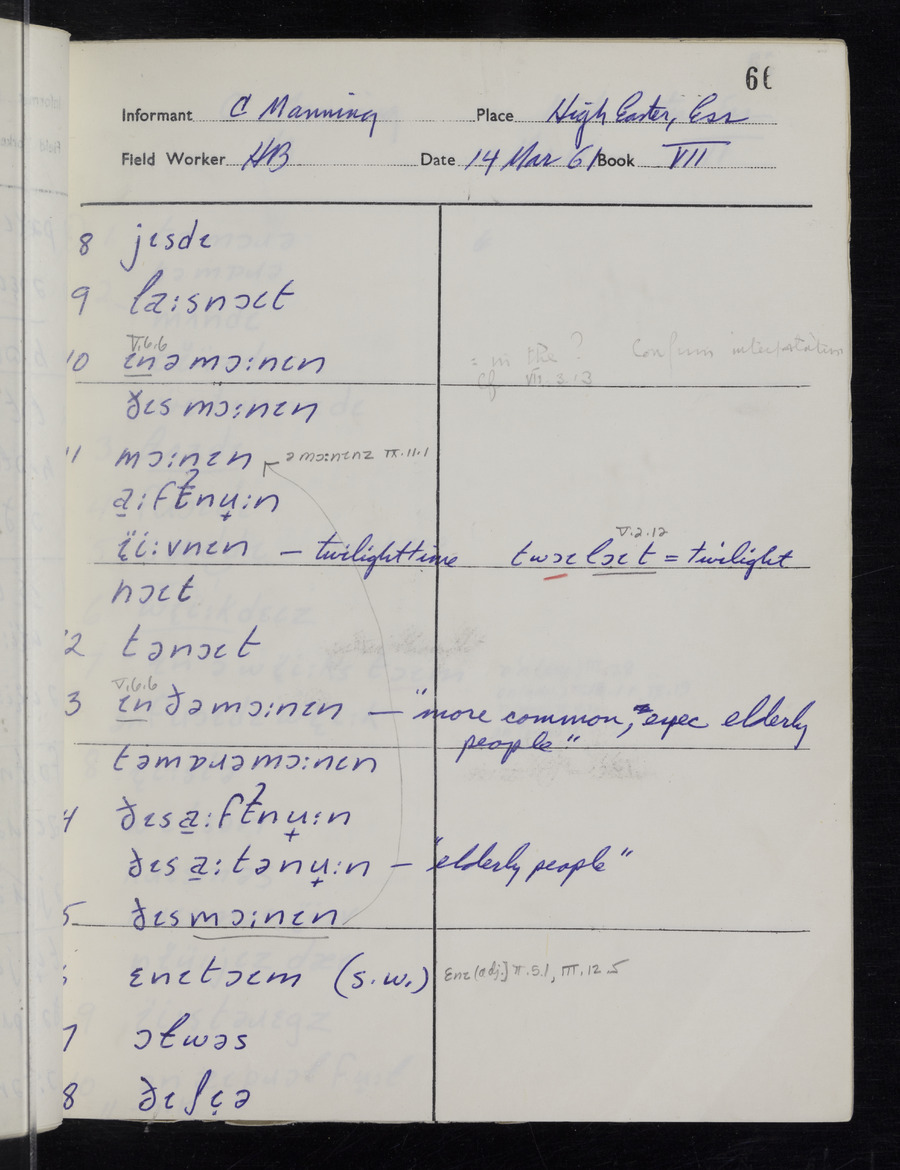 66
Informant C Manning Place High Easter, Ess
Field Worker HB Date 14 Mar 61 Book VII
8 jɛsdɛ
9 lɑ:snɔɪt
V.6.6
10 ɪnəmɔ:nɪn = in the? Confirm interpretation
cf VII.3.13
ðɪsmɔ:nɪn
11 mɔ:nɪn əmɔ:nɪnz III.11.1
a̱:ftʔnu̟:n
V.2.12
ɪ̈i:vnɪn – twilight time twɔɪlɔɪt = twilight
nɔɪt
12 tənɔɪt
V.6.6
3 ɪnðəmɔ:nɪn – "more common, elderly
people"
təmɒɹəmɔ:nɪn
4 ðɪsa̱:ftʔnu̟:n
ðɪsa̱:tənu̟:n – "elderly people"
5 ðɪsmɔ:nɪn
ɛnɪtɔɪm (s.w.) ɛnɪ [adj.] II.5.1, III.12.5
7 ɔɫwəs
8 ðɪʃɪ̣ə